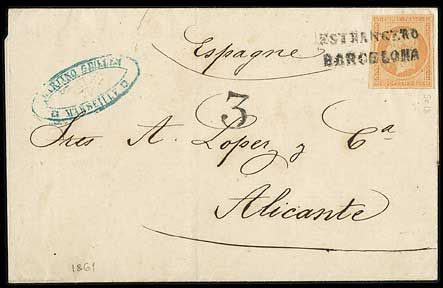 Espagne
ESTRANGERO
BARCELONA
MARTINO GUILLEM
MARSEILLE
3
Sres A. Lopez y Cª
Alicante
1861